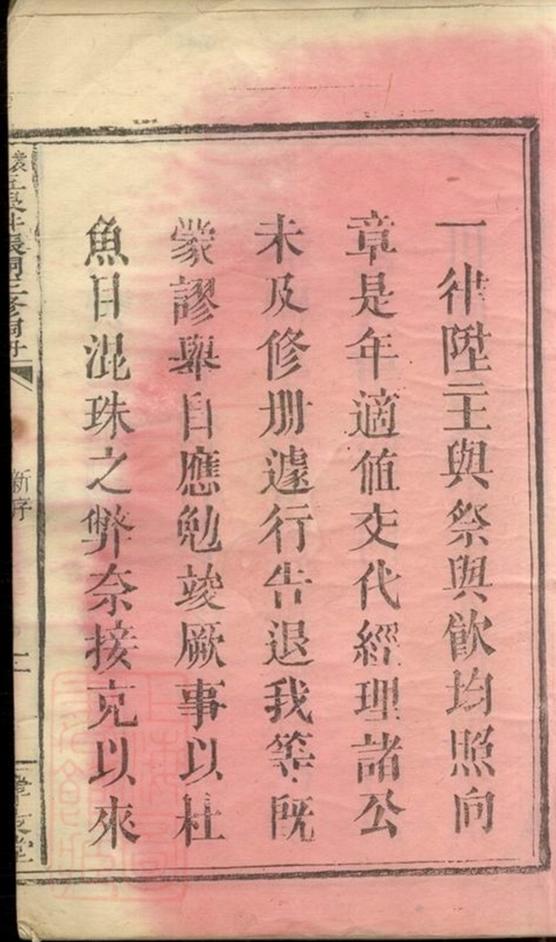 一律陞主與祭與飲均照向
章是年適值交代經理諸公
未及修册遽行告退我等既
蒙謬舉自應勉竣厥事以杜
魚目混珠之弊奈接充以來
新序